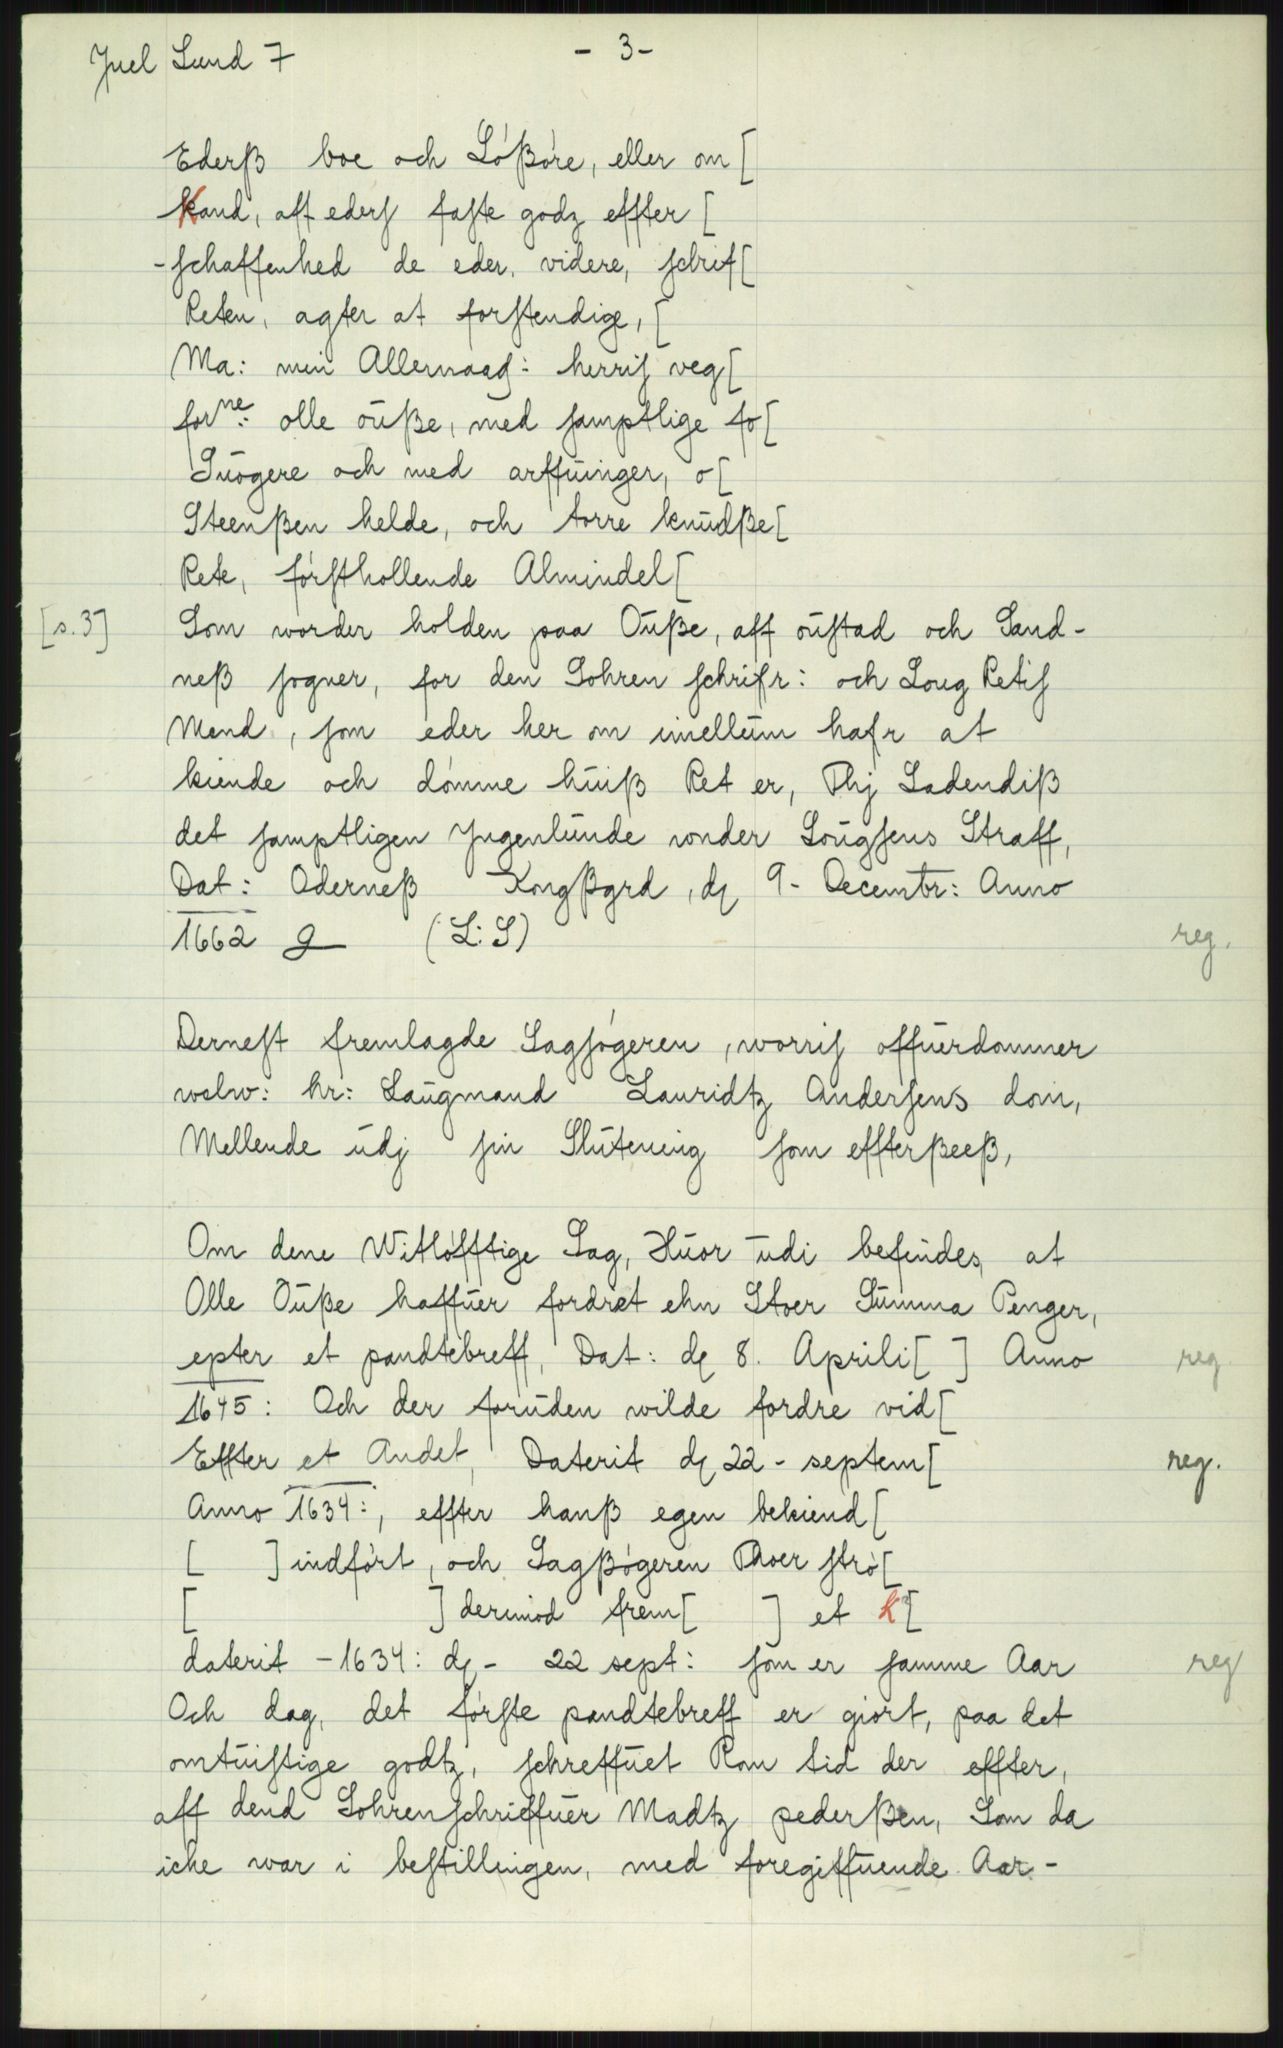 Juel Lund 7
- 3 -
Ederß boe och Lößöre, eller om [
Kand, aff eders faste godz effter [
- schaffenhed de eder, videre, schrif[
Reten, agter at forstendige, [
Ma: min Allernaad: herris veg[
forne: olle oüße, med samptlige fo[
Süogere och med arffüinger, o[
Steenßen helde, och torre knüdße[
Rete, försthollende Almindel[
[s.3] Som worder holden paa Oüße, aff oüstad och Sand-
neß sogner, for den Sohren schrifr: och Loug Retis
Mend, som eder her om imellüm hafr at
kiende och dömme hüiß Ret er, Thj Ladendiß
det samptligen Jngenlünde wnder Loügsens Straff,
Dat: Oderneß Kongßgrd, dg 9 - Decembr: Anno
1662 g (L: S) reg.
Dernest fremlagde Sagsögeren, worris offüerdommer
welw: hr: Laügmand Lauridtz Andersens dom,
Mellende üdj sin Slütening som effterßeeß,
Om dene Witlöfftige Sag, Hüor üdi befindes, at
Olle Oüße haffüer fordret ehn Stoer Sümma Penger,
epter et pandtebreff, Dat: dg 8. Aprili[ ] Anno reg
1645: Och der forüden wilde fordre vid[
Effter et Andet, Daterit dg 22 - septem[ reg.
Anno 1634:, effter hanß egen bekiend[
[ ] indfört, och Sagßögeren Thoer strö[
[ ] derimod frem[ ] et k[
daterit - 1634: dg - 22 sept: som er samme Aar reg
Och dag, det förste pandtebreff er giort, paa det
omtüistige godtz, schreffüet Rom tid der effter,
aff dend Sohrenschrieffüer Madtz pederßen, Som da
icke war i bestillingen, med foregiffüende Aar -